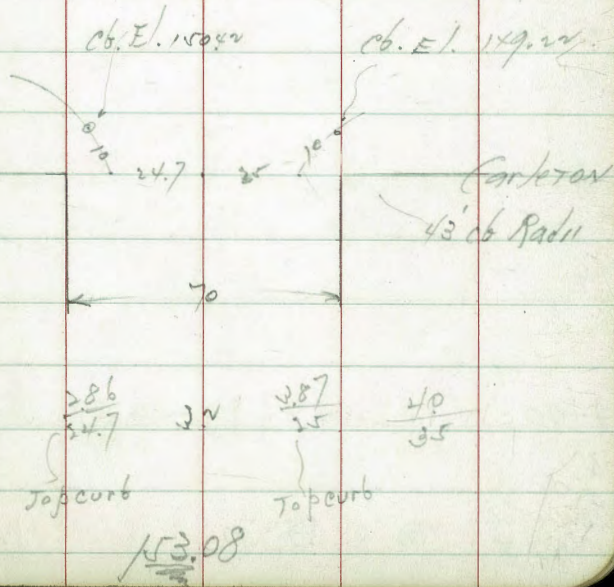 Cb. El. 150.42 Cb. El. 149.22
10 10
24.7 25 Carleton
43' cb Radii
70
2.86 3.2 3.87 4.0
24.7 25 35
Top curb Top curb
153.08